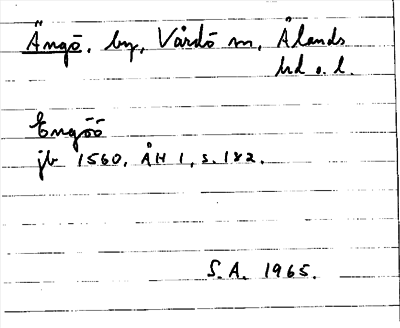 Ängö, by, Vårdö sn, Ålands
hd o. l.
Engöö
jb 1560, ÅH 1, s. 182.
S.A. 1965.